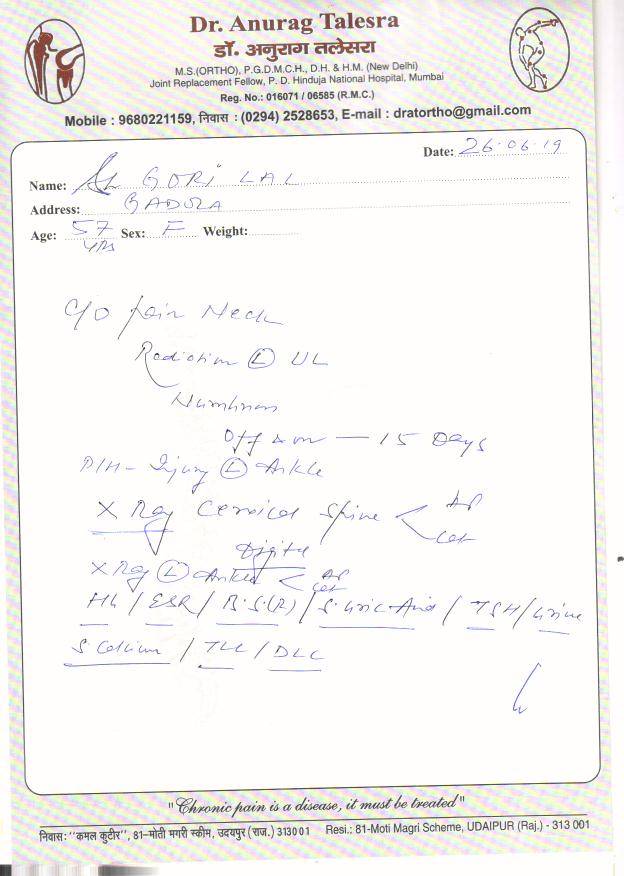 Dr. Anurag Talesra
डॉ. अनुराग तलेसरा
M.S.(ORTHO), P.G.D.M.C.H., D.H. & H.M. (New Delhi)
Joint Replacement Fellow, P. D. Hinduja National Hospital, Mumbai
Reg. No.: 016071 / 06585 (R.M.C.)
Mobile : 9680221159, निवास : (0294) 2528653, E-mail : dratortho@gmail.com
Date: 26.06.19
Name: GORI LAL
Address:
Age: 57 yrs Sex: F Weight:
C/O Pain Neck
Radiation (L) UL
Numbness
Off & on — 15 Days
P/H - Injury (L) Ankle
X Ray Cervical Spine < AP Lat
Digital
X Ray (L) Ankle < AP Lat
Hb / ESR / B.S.(R) / S. Uric Acid / TSH / Urine
S. Calcium / TLC / DLC
"Chronic pain is a disease, it must be treated"
निवास: "कमल कुटीर", 81-मोती मगरी स्कीम, उदयपुर (राज.) 313001 Resi.: 81-Moti Magri Scheme, UDAIPUR (Raj.) - 313 001